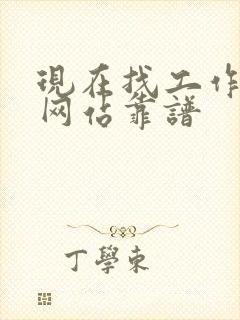 現在找工作
网佔靠譜
丁學東